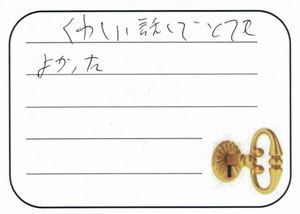 くわしい話しでとても
よかった